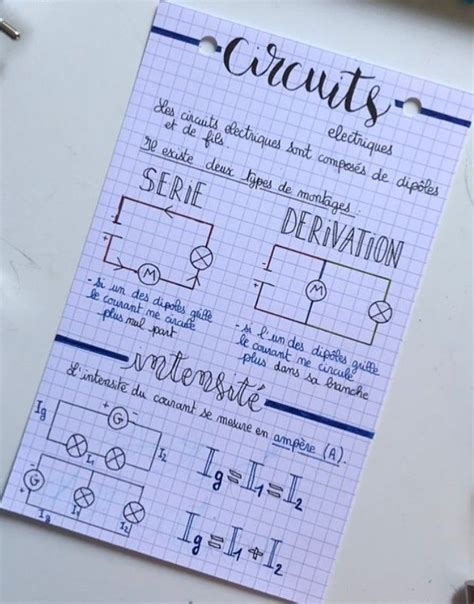 Circuits
electriques
Les circuits electriques sont composés de dipôles
et de fils.
Il existe deux types de montages :
SERIE
DERIVATION
+
-
M
+
-
M
- si un des dipoles grille
le courant ne circule
plus nul part
- si l'un des dipôles grille
le courant ne circule
plus dans sa branche
intensité
L'intensité du courant se mesure en ampère (A).
Ig
+
G
-
I1
I2
Ig = I1 = I2
+
G
-
Ig
I1
I2
Ig = I1 + I2